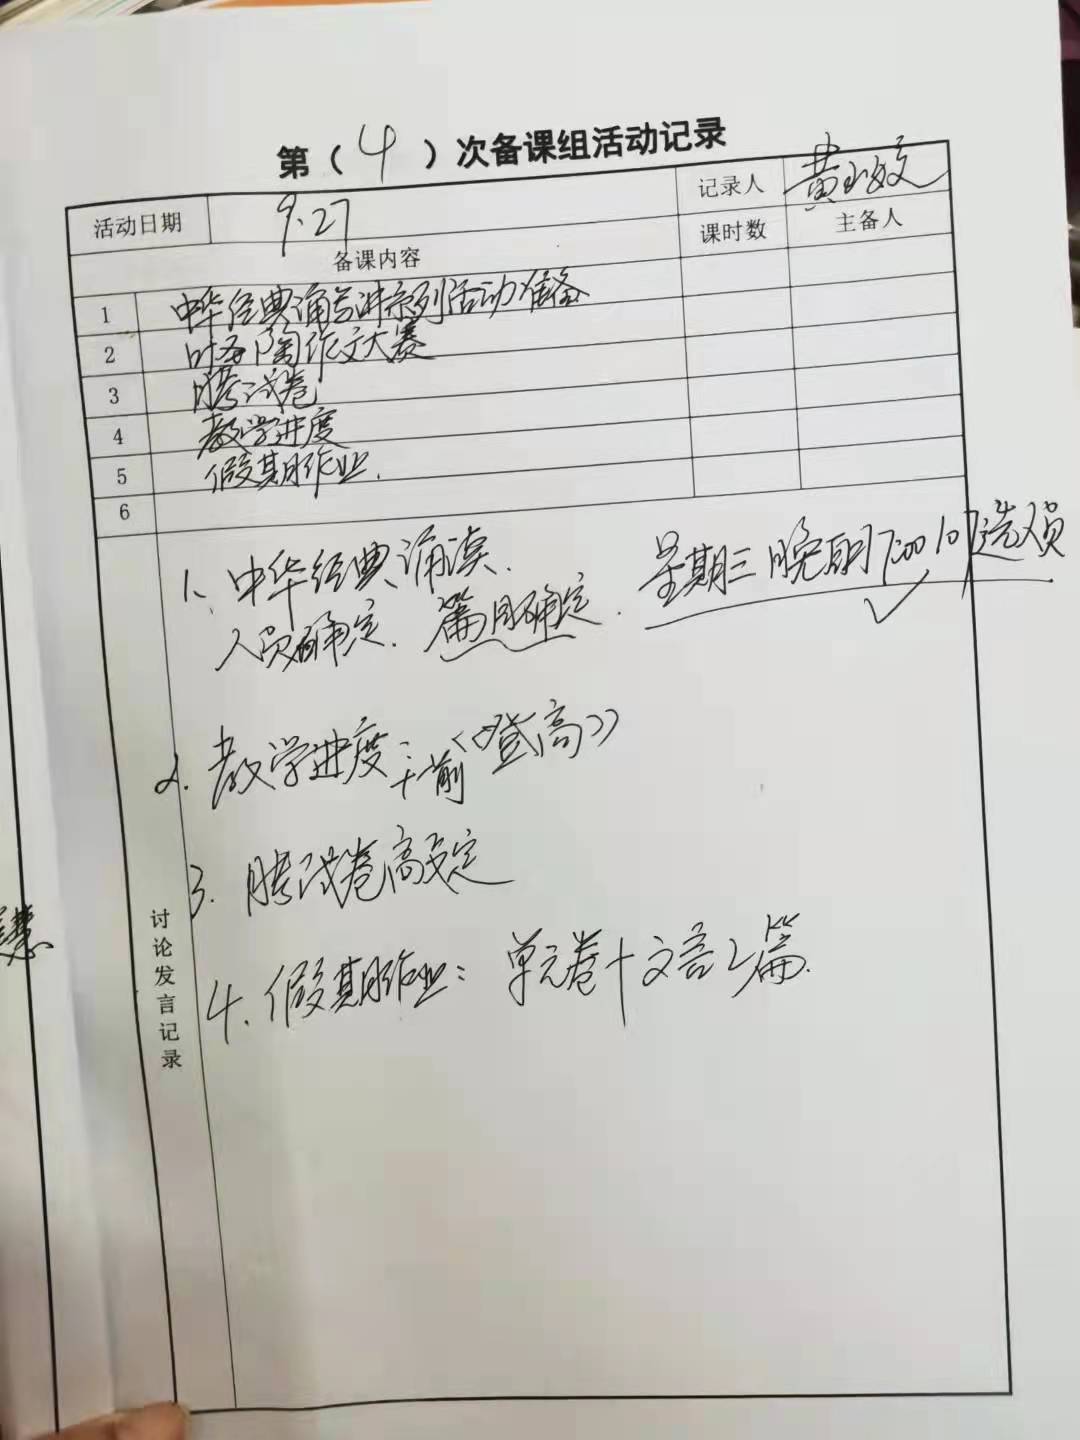 第（4）次备课组活动记录
活动日期 9.27 记录人 黄
备课内容 课时数 主备人
1 中华经典诵写讲系列活动准备
2 叶圣陶作文大赛
3 月考试卷
4 教学进度
5 假期作业.
6
1、中华经典诵读. 星期三晚 7:00 选人员
人员确定. 篇目确定.
2. 教学进度: 十一前《登高》
3. 月考试卷高定
4. 假期作业: 单元卷+文言2篇.
讨论发言记录